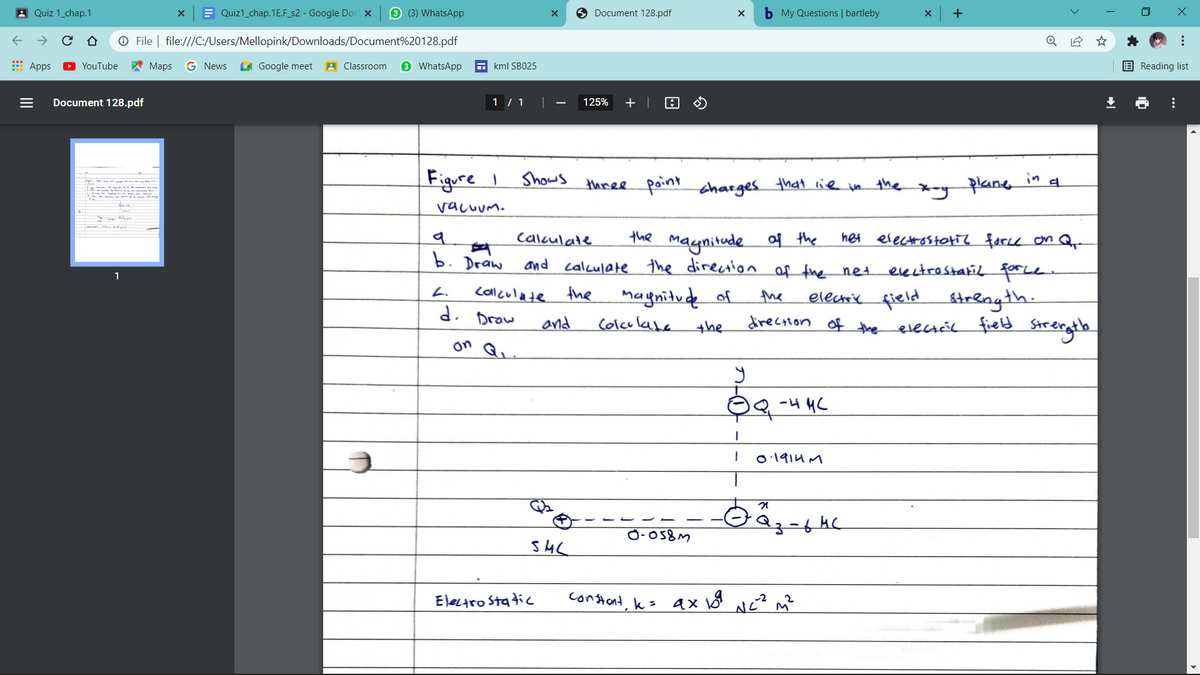 Quiz 1_chap.1
Quiz1_chap.1E.F_s2 - Google Do
(3) WhatsApp
Document 128.pdf
b My Questions | bartleby
File | file:///C:/Users/Mellopink/Downloads/Document%20128.pdf
Apps
YouTube
Maps
News
Google meet
Classroom
WhatsApp
kml SB025
Reading list
Document 128.pdf
1 / 1
125%
1
Figure 1 shows three point charges that lie in the x-y plane in a
vacuum.
a. calculate the magnitude of the net electrostatic force on Q₁.
b. Draw and calculate the direction of the net electrostatic force.
c. calculate the magnitude of the electric field strength.
d. Draw and calculate the direction of the electric field strength
on Q₁.
y
Q₁ -4 μC
0.1914 M
Q₂
x
+
- Q₃ -6 μC
0.058M
5 μC
Electrostatic constant, k = 9x10⁹ NC⁻² m²